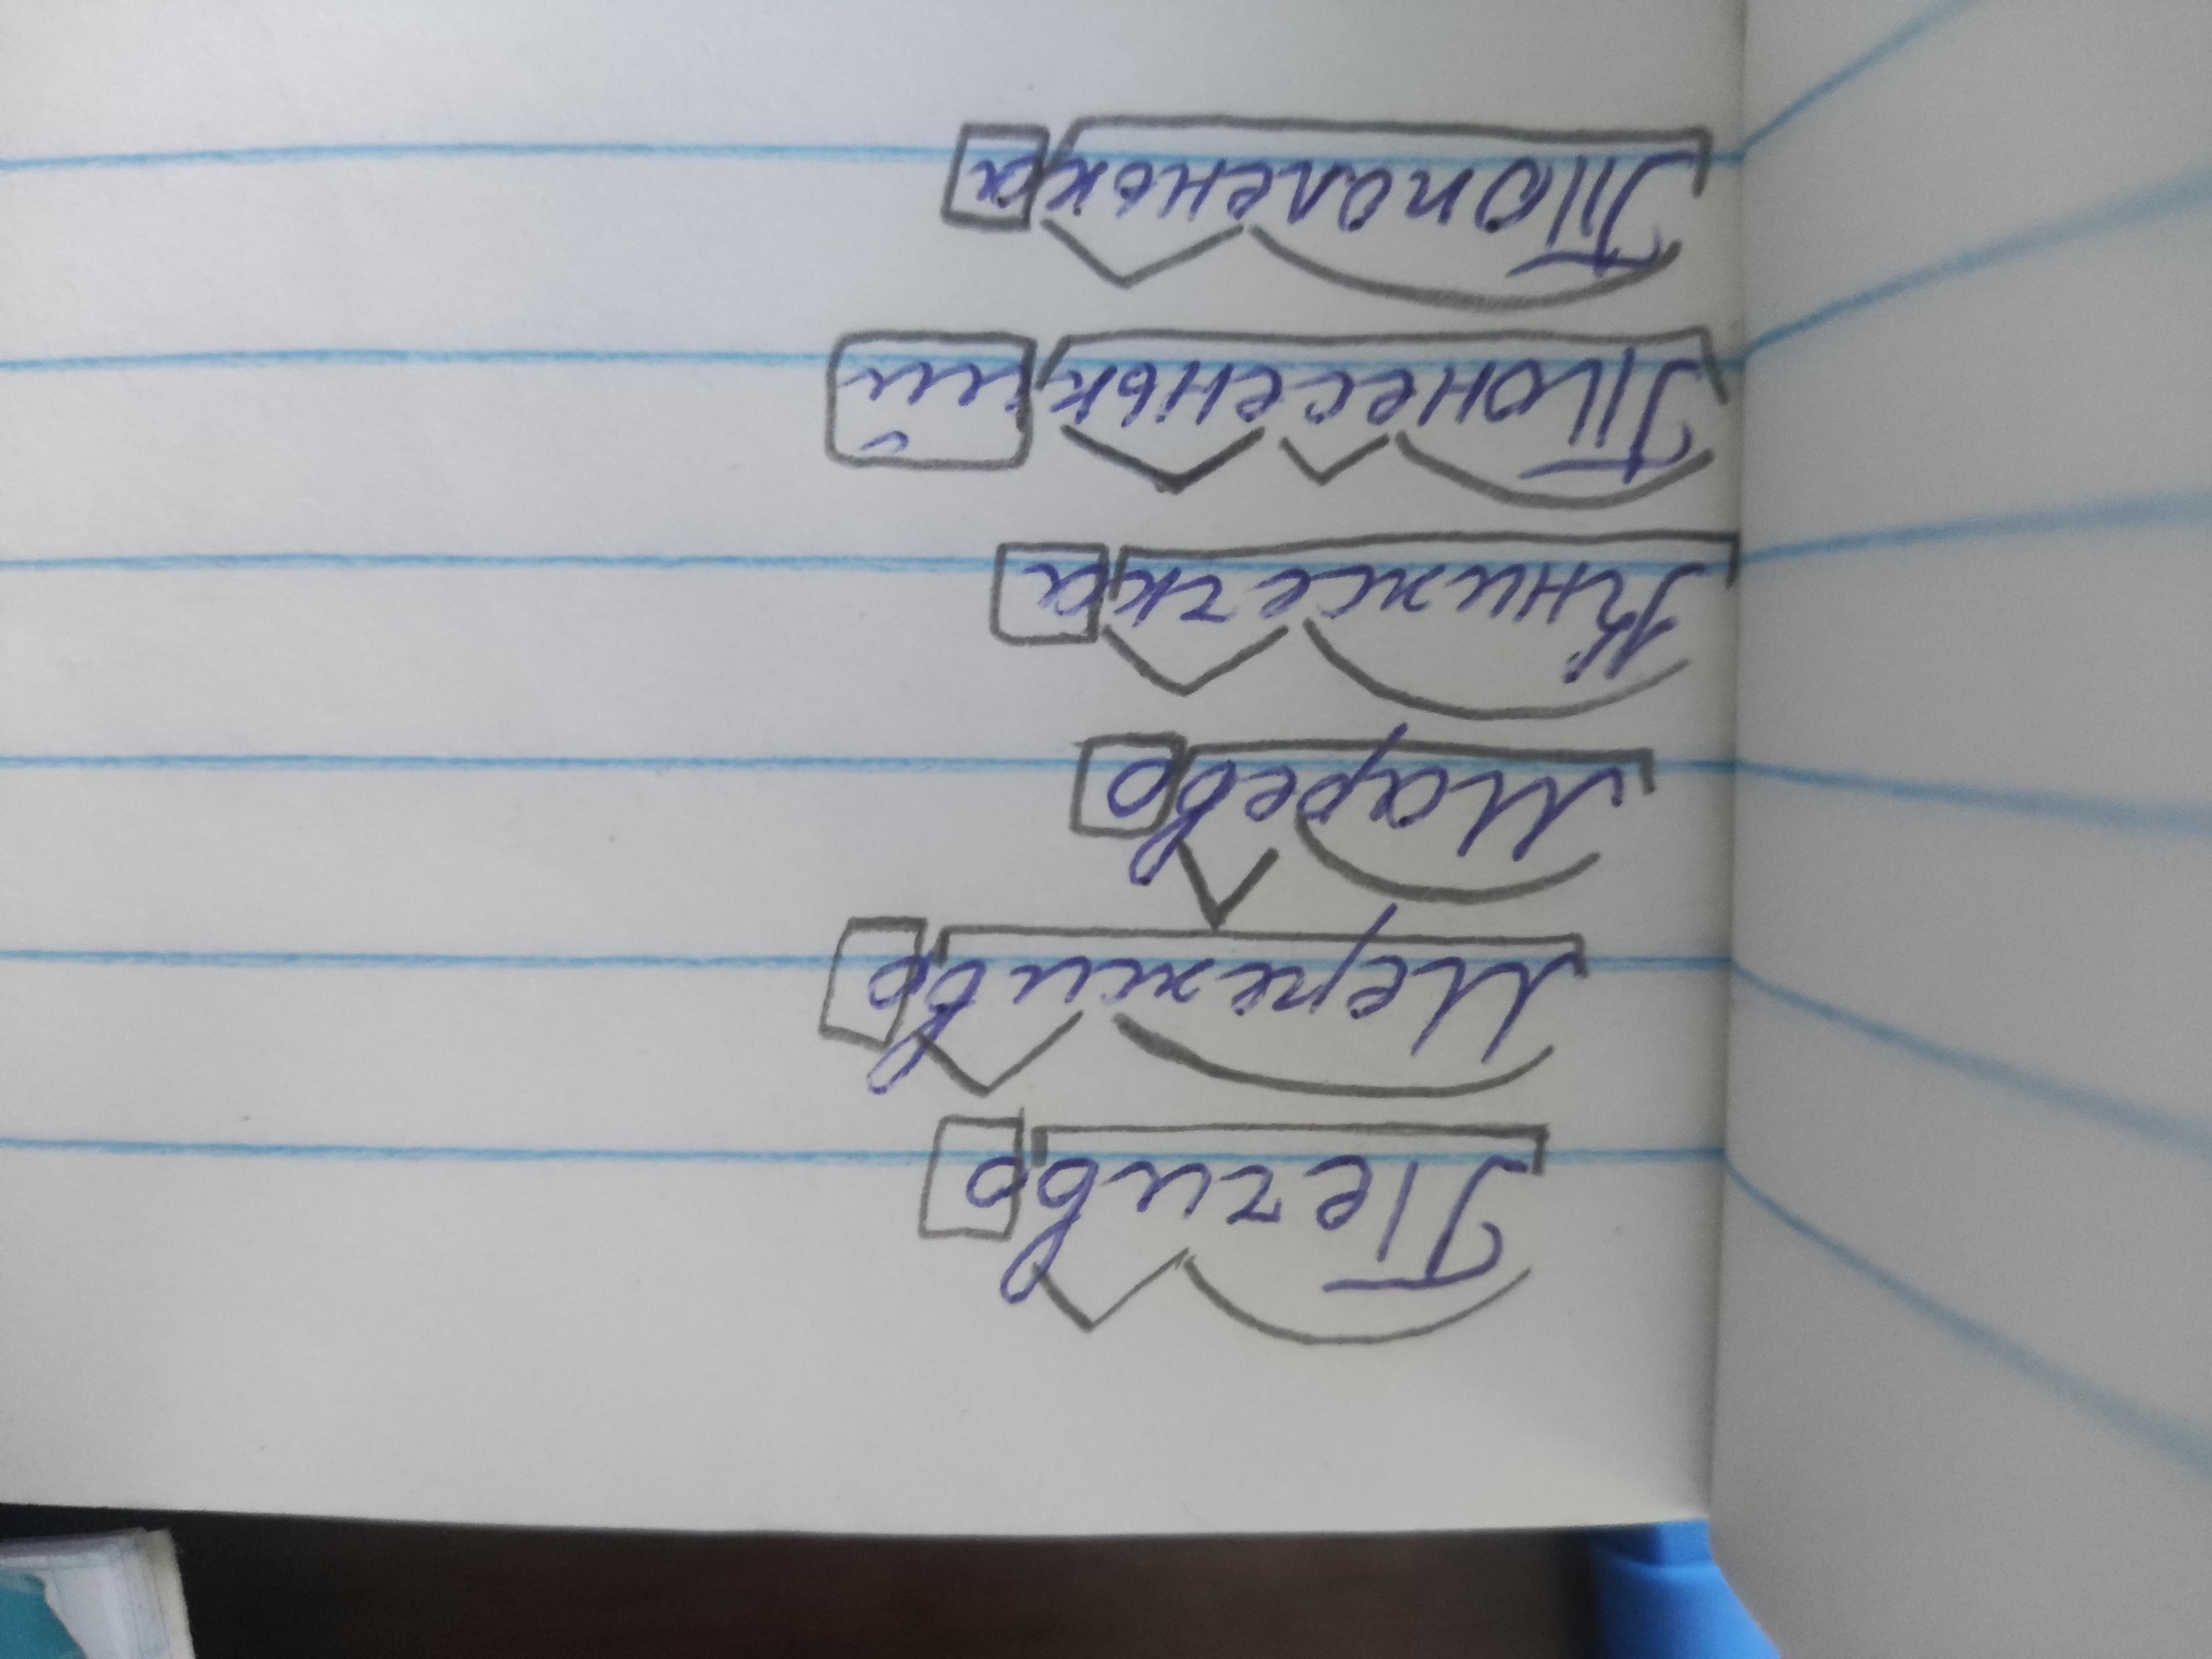 Печиво
Мереживо
Марево
Книжечка
Тонесенький
Тополенька